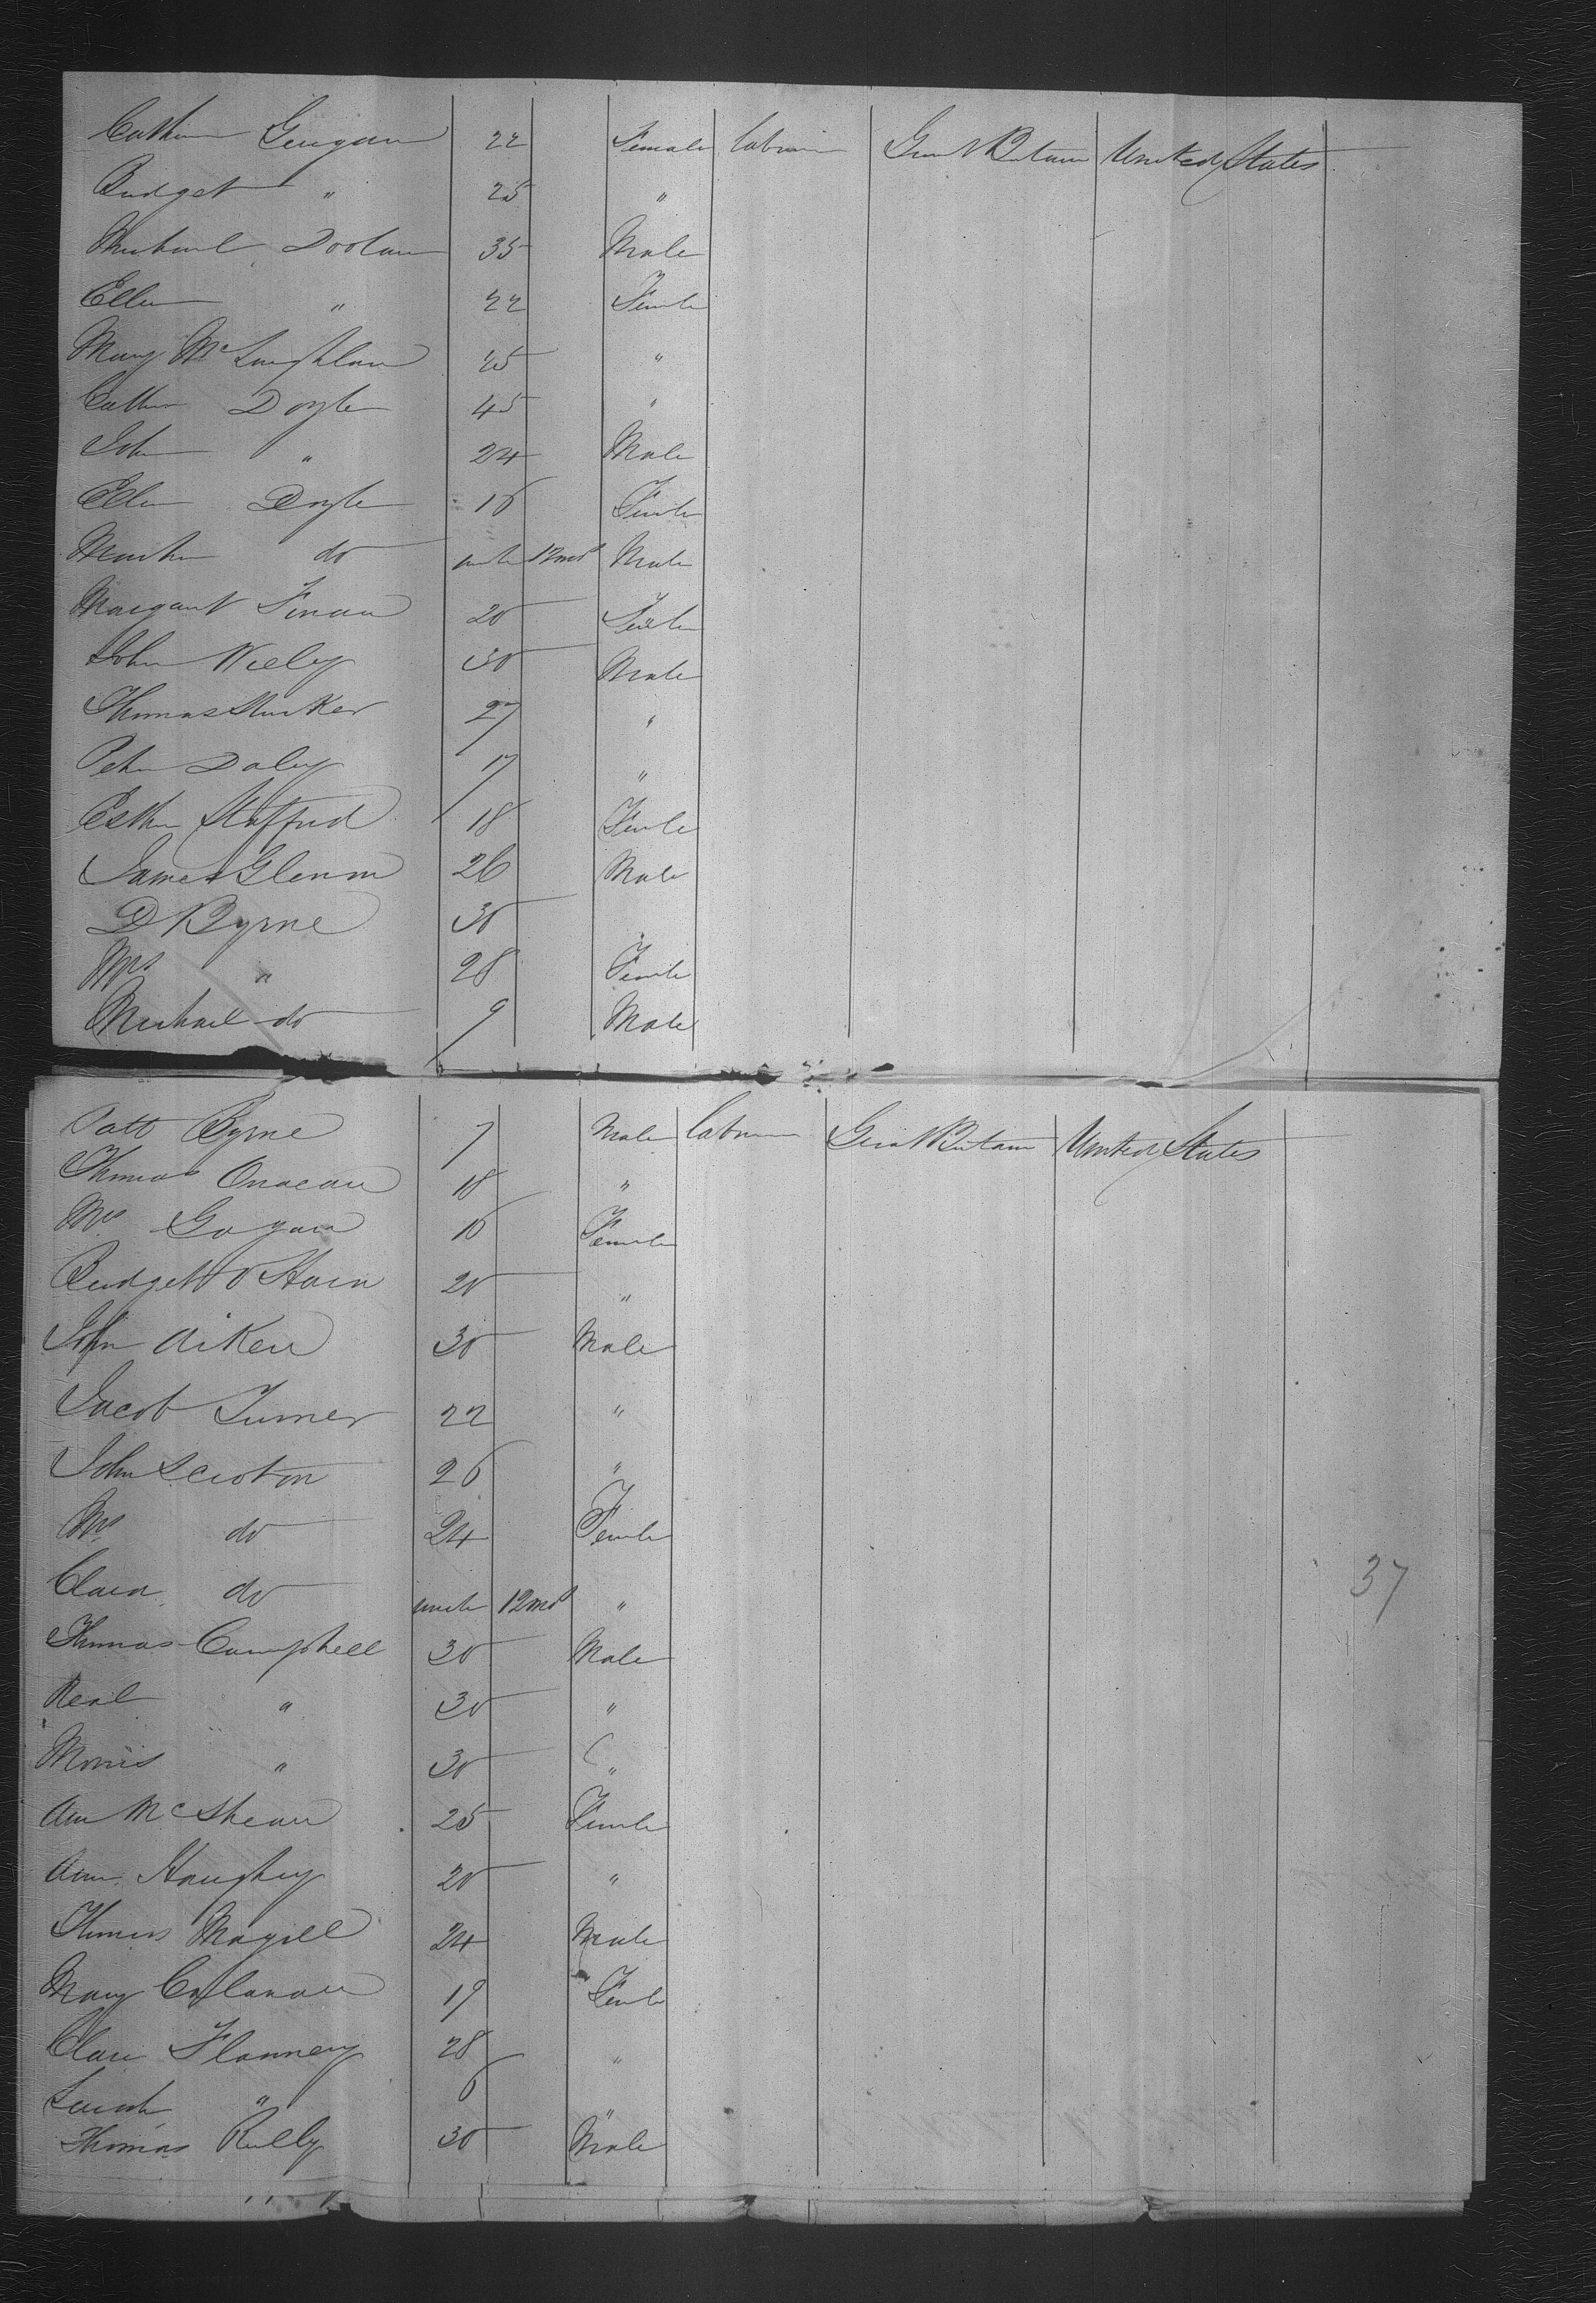 Cathrin Geugan 22 Female labrin Great Britain United States
Bridget " 25 "
Michael Doolan 35 Male
Ellen " 22 Femle
Mary McLaughlan 25 "
Cathn Doyle 45 "
John " 24 Male
Ellen Doyle 16 Femle
do under 12 mos Male
Margaret Finan 20 Femle
John Neely 30 Male
Thomas 27 "
Peter Daley 17 "
Esther Staffrd 18 Femle
James Glenn 26 Male
D Byrne 30
Mrs " 28 Femle
Michael do 9 Male
Patt Byrne 7 Male labrin Great Britain United States
Thomas 18 "
Mrs Gogan 16 Female
Bridget O Hara 20 "
John Aiken 30 Male
Jacob Turner 22 "
John Scroton 26 "
Mrs do 24 Femle
Clara do under 12 mos "
Thomas Campbell 30 Male
Neal " 30 "
Morris " 30 "
Ann McShean 25 Femle
Ann Haughey 20 "
Thomas Magill 24 Male
Mary Callanan 19 Femle
Clara Flannery 28 "
Sarah " 6 "
Thomas Reilly 30 Male
37